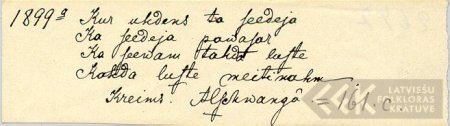 1899 a Kur uhdens ta seedeja
Ka seedeja pawasar
Ka seewam tahda luste
Kahda luste meitinahm
Kreims. Alschwangâ = 161. c.
LATVIEŠU
FOLKLORAS
KRATUVE